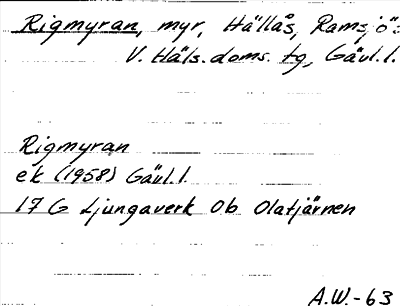 Rigmyran, myr, Hällås, Ramsjö:
V. Häls. doms. tg, Gävl. l.
Rigmyran
ek (1958) Gävl. l.
17 G Ljungaverk Ob Olatjärnen
A.W.-63